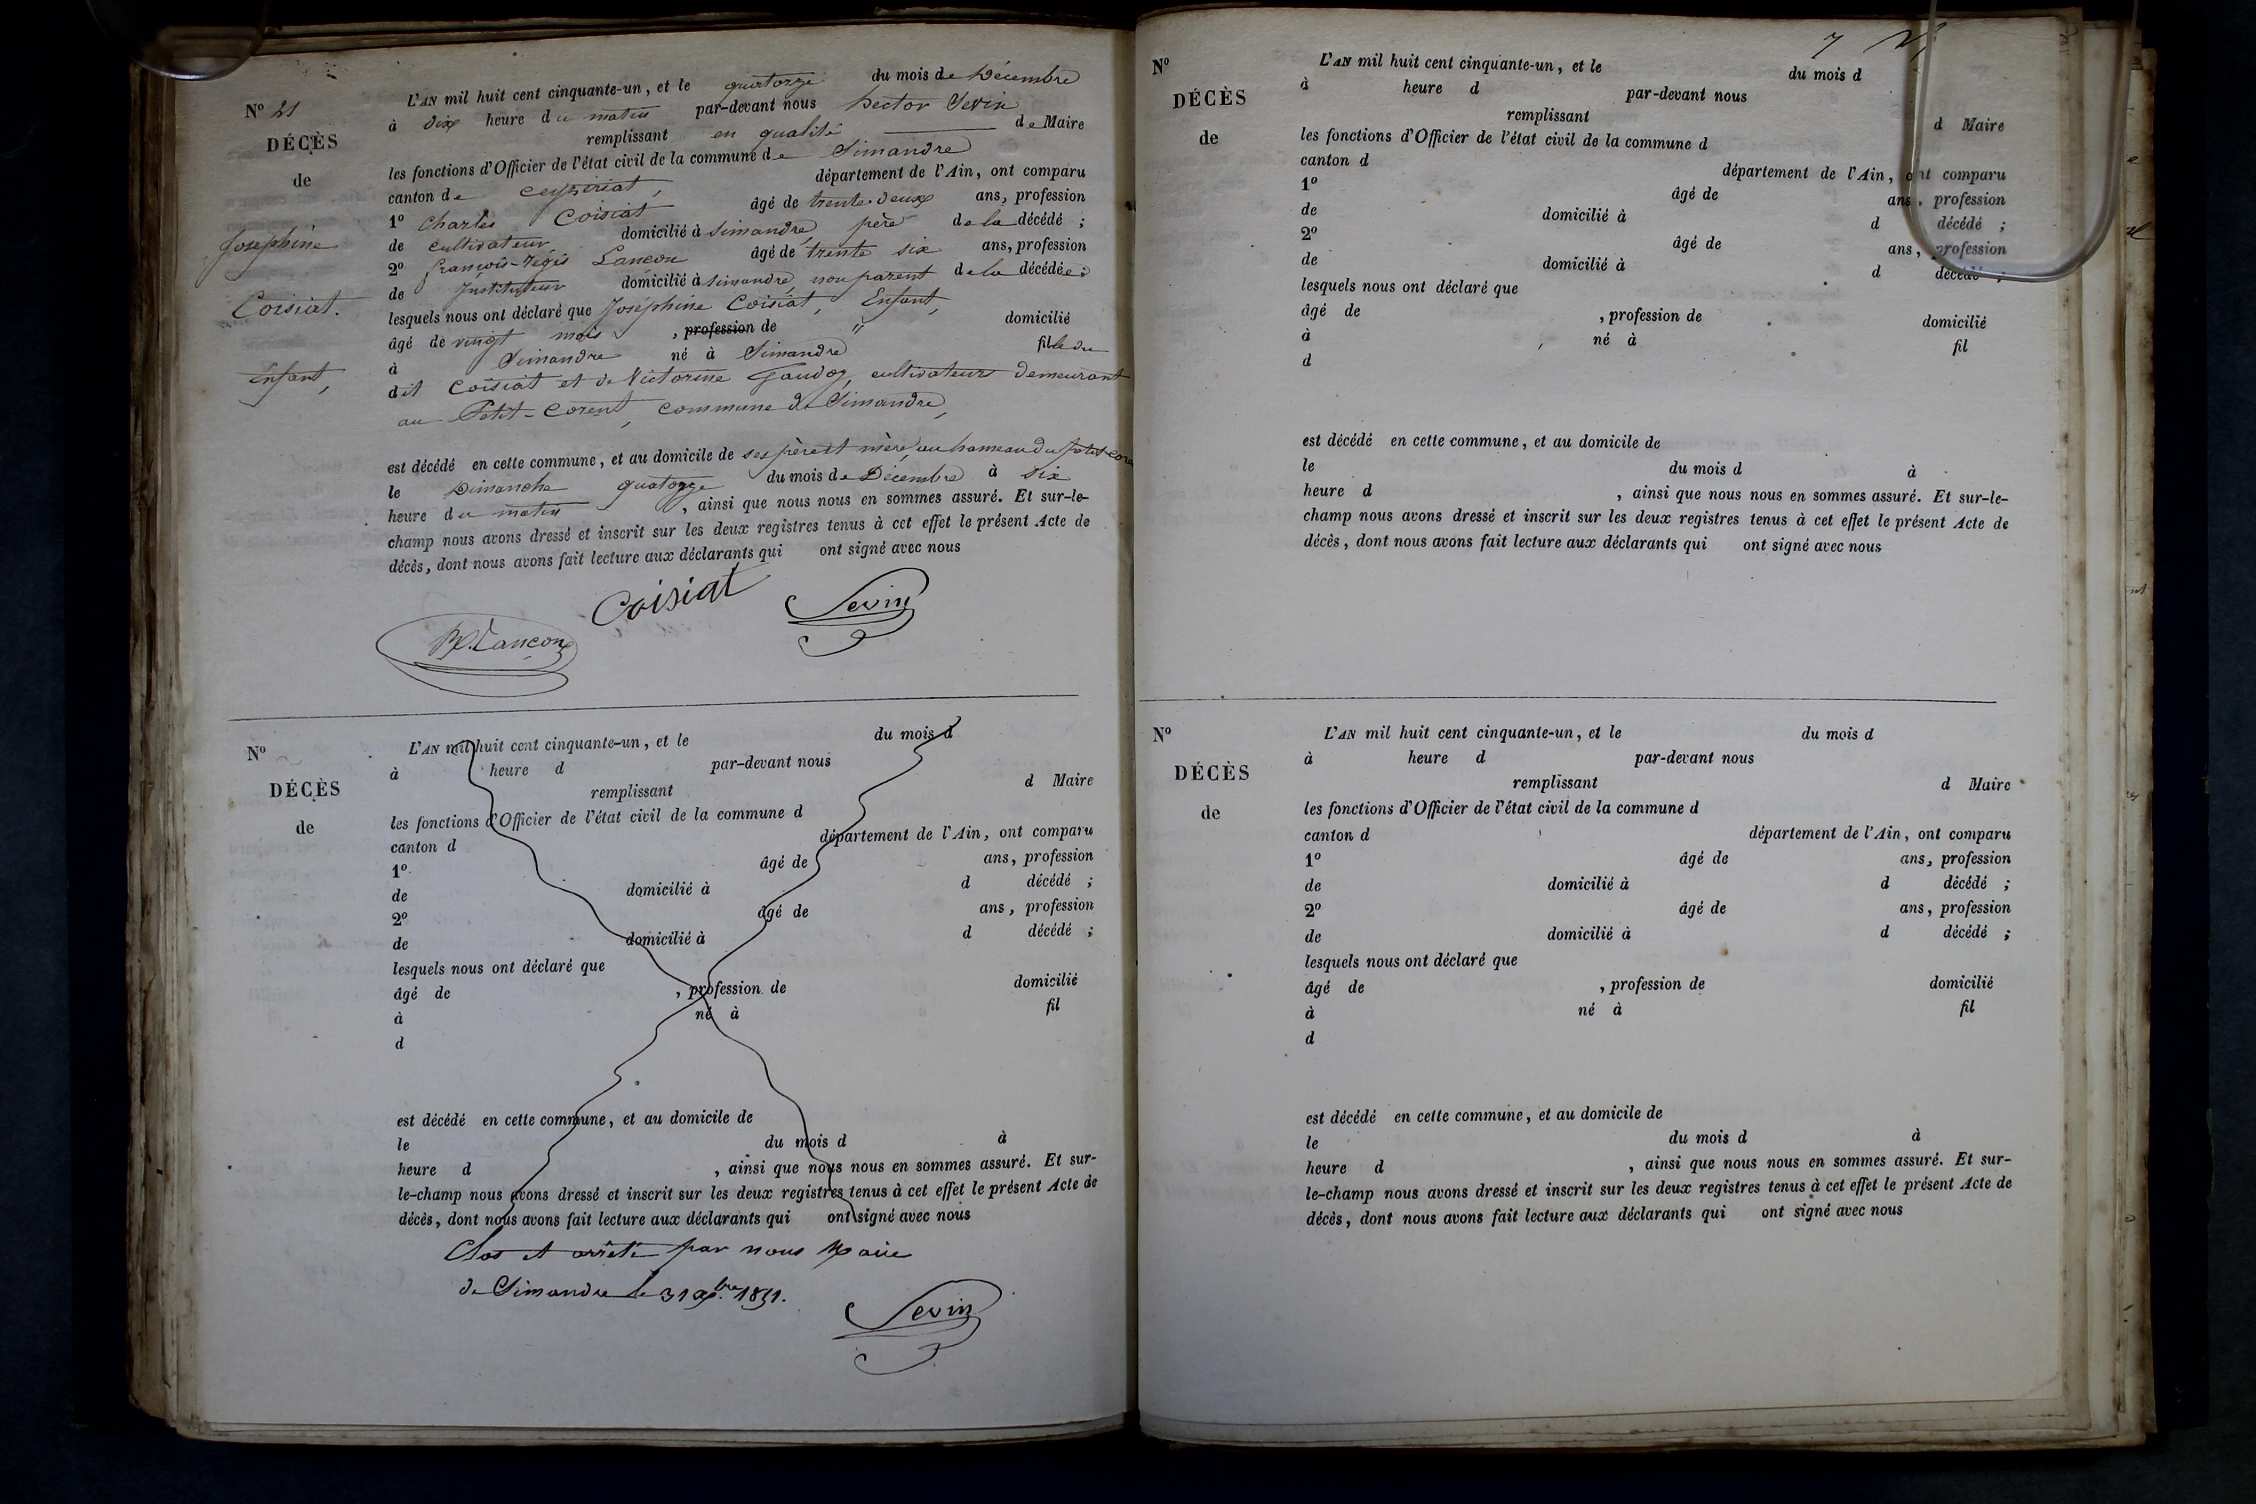 N° 21
DÉCÈS
de
Joséphine
Coisiat.
Enfant,
L'AN mil huit cent cinquante-un, et le quatorze du mois de Décembre
à dix heure du matin par-devant nous hector Sevin
remplissant en qualité de Maire
les fonctions d'Officier de l'état civil de la commune de Simandre
canton de ceyzériat, département de l'Ain, ont comparu
1° Charles Coisiat âgé de trente-deux ans, profession
de cultivateur domicilié à Simandre, père de la décédé ;
2° françois-régis Lancon âgé de trente six ans, profession
de Instituteur domicilié à simandre, non parent de la décédée ;
lesquels nous ont déclaré que Joséphine Coisiat, Enfant,
âgé de vingt mois, profession de " domicilié
à Simandre né à Simandre fille du
dit Coisiat et de Victorine Gauday, cultivateurs demeurant
au Petit-Corent, commune de Simandre,
est décédé en cette commune, et au domicile de ses père et mère, au hameau du petit-core
le Dimanche quatorze du mois de Décembre à six
heure du matin, ainsi que nous nous en sommes assuré. Et sur-le-
champ nous avons dressé et inscrit sur les deux registres tenus à cet effet le présent Acte de
décès, dont nous avons fait lecture aux déclarants qui ont signé avec nous
Coisiat Sevin
R. Lancon
N°
DÉCÈS
de
L'AN mil huit cent cinquante-un, et le du mois d
à heure d par-devant nous
remplissant d Maire
les fonctions d'Officier de l'état civil de la commune d
canton d département de l'Ain, ont comparu
1° âgé de ans, profession
de domicilié à d décédé ;
2° âgé de ans, profession
de domicilié à d décédé ;
lesquels nous ont déclaré que
âgé de , profession de domicilié
à né à fil
d
est décédé en cette commune, et au domicile de
le du mois d à
heure d , ainsi que nous nous en sommes assuré. Et sur-
le-champ nous avons dressé et inscrit sur les deux registres tenus à cet effet le présent Acte de
décès, dont nous avons fait lecture aux déclarants qui ont signé avec nous
Clos et arrêté par nous Maire
de Simandre le 31 Xbre 1851.
Sevin
7
N°
DÉCÈS
de
L'AN mil huit cent cinquante-un, et le du mois d
à heure d par-devant nous
remplissant d Maire
les fonctions d'Officier de l'état civil de la commune d
canton d département de l'Ain, ont comparu
1° âgé de ans, profession
de domicilié à d décédé ;
2° âgé de ans, profession
de domicilié à d décédé ;
lesquels nous ont déclaré que
âgé de , profession de domicilié
à né à fil
d
est décédé en cette commune, et au domicile de
le du mois d à
heure d , ainsi que nous nous en sommes assuré. Et sur-le-
champ nous avons dressé et inscrit sur les deux registres tenus à cet effet le présent Acte de
décès, dont nous avons fait lecture aux déclarants qui ont signé avec nous
N°
DÉCÈS
de
L'AN mil huit cent cinquante-un, et le du mois d
à heure d par-devant nous
remplissant d Maire
les fonctions d'Officier de l'état civil de la commune d
canton d département de l'Ain, ont comparu
1° âgé de ans, profession
de domicilié à d décédé ;
2° âgé de ans, profession
de domicilié à d décédé ;
lesquels nous ont déclaré que
âgé de , profession de domicilié
à né à fil
d
est décédé en cette commune, et au domicile de
le du mois d à
heure d , ainsi que nous nous en sommes assuré. Et sur-
le-champ nous avons dressé et inscrit sur les deux registres tenus à cet effet le présent Acte de
décès, dont nous avons fait lecture aux déclarants qui ont signé avec nous